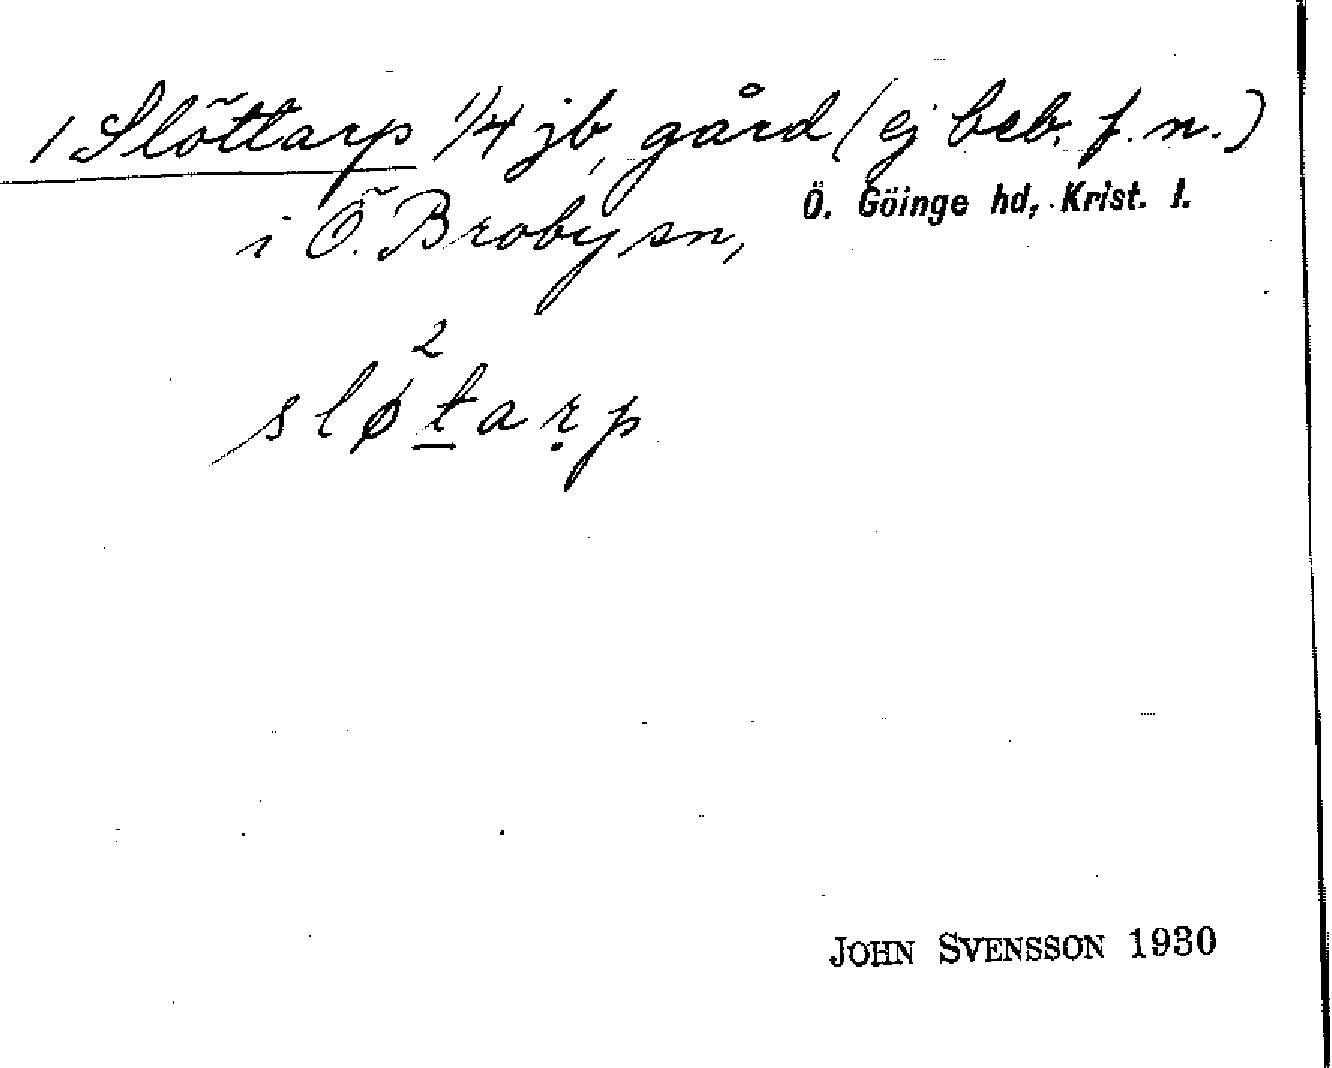 1 Slöttarp 1/4 jb, gård (ej beb. f. n.)
i Ö. Broby sn, Ö. Göinge hd, Krist. l.
slø²t̲arp̣
JOHN SVENSSON 1930